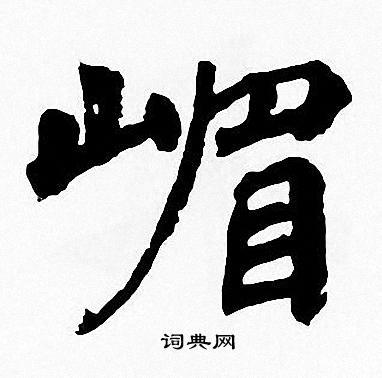 嵋
词典网